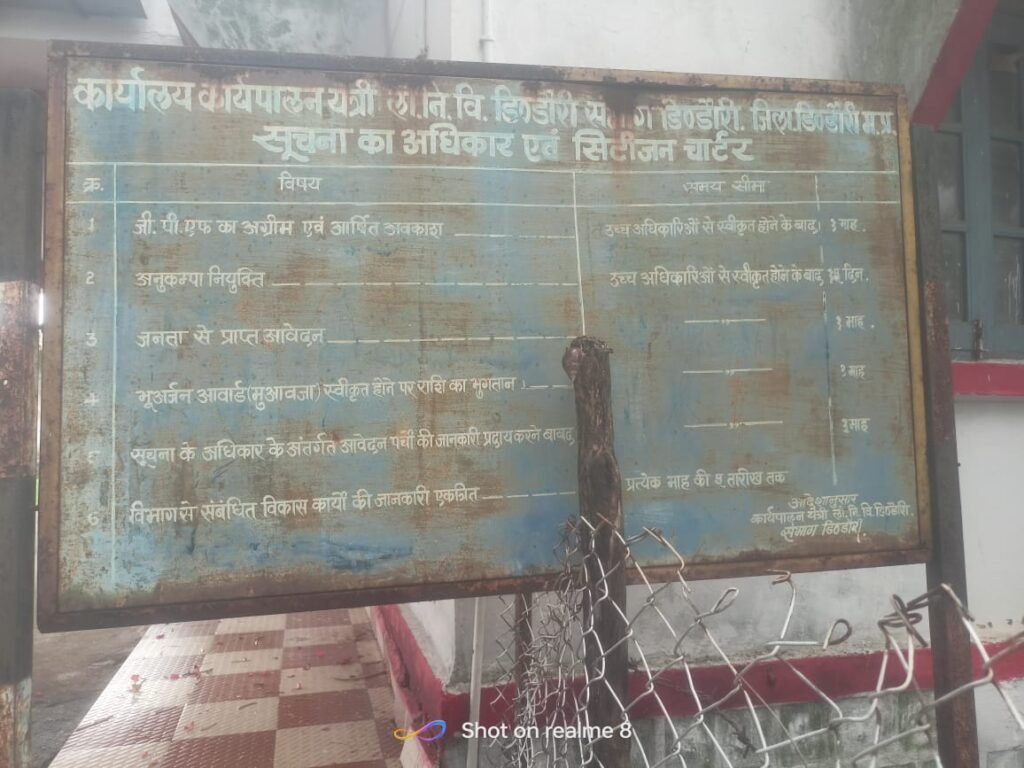 कार्यालय कार्यपालन यंत्री लो.नि.वि. डिण्डौरी संभाग डिण्डौरी. जिला डिण्डौरी म.प्र.
सूचना का अधिकार एवं सिटीजन चार्टर
क्र. विषय समय सीमा
1 जी. पी. एफ का अग्रीम एवं आर्षित अवकाश उच्च अधिकारिओं से स्वीकृत होने के बाद। १ माह.
2 अनुकम्पा नियुक्ति उच्च अधिकारिओं से स्वीकृत होने के बाद दिन.
3 जनता से प्राप्त आवेदन —"— १ माह.
4 भूअर्जन आवार्ड (मुआवजा) स्वीकृत होने पर राशि का भुगतान। —"— १ माह
5 सूचना के अधिकार के अंतर्गत आवेदन पत्रों की जानकारी प्रदाय करने बाबद् —"— १ माह
6 विभाग से संबंधित विकास कार्यों की जानकारी एकत्रित प्रत्येक माह की ५ तारिख तक
आदेशानुसार
कार्यपालन यंत्री लो.नि.वि. डिण्डौरी.
संभाग डिण्डौरी।
Shot on realme 8